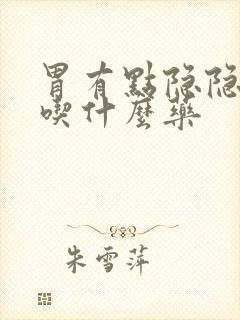 胃有點隐隐
喫什麼藥
朱雪萍